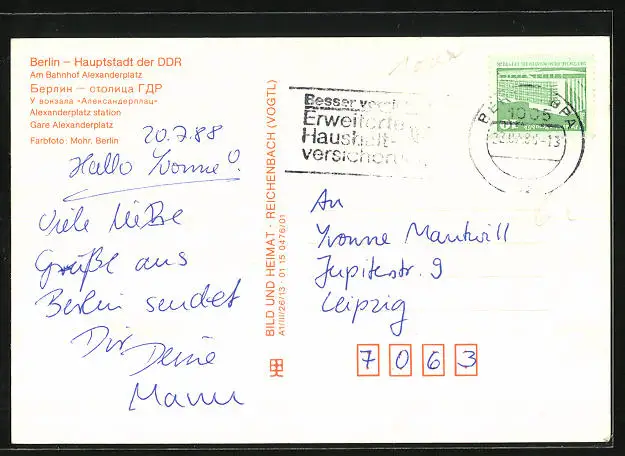 Berlin – Hauptstadt der DDR
Am Bahnhof Alexanderplatz
Берлин – столица ГДР
У вокзала «Александерплац»
Alexanderplatz station
Gare Alexanderplatz
Farbfoto: Mohr, Berlin
20.7.88
Hallo Yvonne!
Viele liebe
Grüße aus
Berlin sendet
Dir Deine
BILD UND HEIMAT · REICHENBACH (VOGTL)
A1/III/26/13 · 01 15 0476/01
Besser
Erweiterte
Haushalt-
BPA
1085
10
An
Yvonne
Jupiterstr. 9
Leipzig
7063